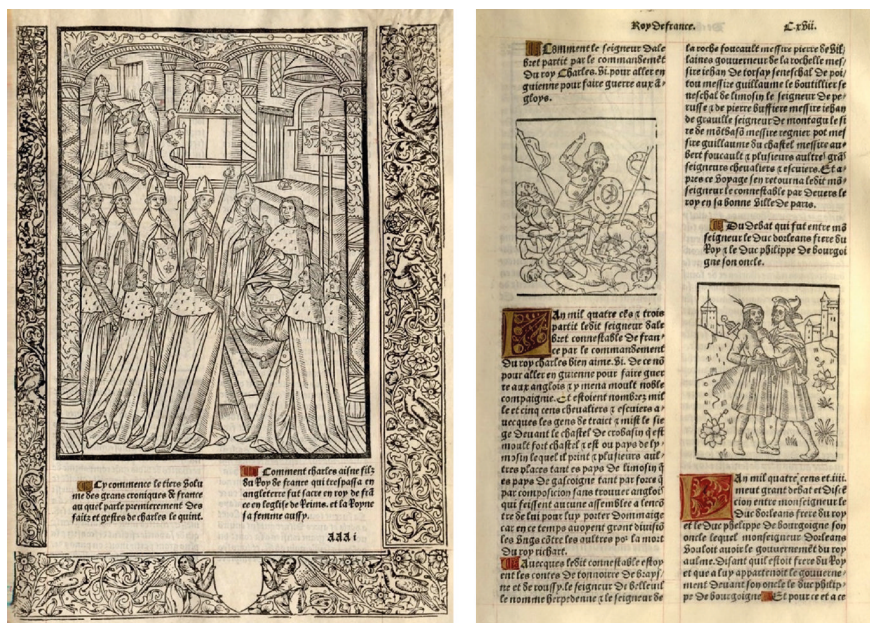 Cy commence le tiers volu
me des grans croniques de france
au quel parle premierement des
faitz et gestes de charles le quint.
Comment charles aisne filz
du Roy de france qui trespassa en
angleterre fut sacre en roy de frā
ce en leglise de Reims. et la Royne
sa femme aussy.
aaa i
Roy de france.
C.xvii.
Comment le seigneur dale
bret partit par le commandemēt
du roy Charles. vi. pour aller en
guienne pour faire guerre aux ā
gloys.
An mil quatre cēs ⁊ trois
partit ledit seigneur dale
bret connestable de fran
ce par le commandement
du roy charles bien aime. vi. de ce nō
pour aller en guienne pour faire guer
re aux anglois ⁊ y mena moult noble
compaignie. Et estoient nombrez mil
le et cinq cens chevaliers ⁊ escuiers a-
vecques les gens de traict ⁊ mist le sie
ge devant le chastel de
moult fort chastel ⁊ est ou pays de ly-
mosin lequel il print ⁊ plusieurs aul-
tres places tant es pays de limosin q̄
es pays de gascoigne tant par force q̄
par composicion sans trouver anglois
qui feissent aucune assemblee a lencō
tre de lui pour luy porter dommaige
car en ce temps avoyent grant divisiō
les ungs cōtre les aultres po² la mort
du roy richart.
Avecques ledit connestable estoy
ent les contes de tonnoirre de
ne et de roussy. le seigneur de belleuil
le nomme herpedenne ⁊ le seigneur de
la roche foucault messire pierre de vil
laines gouverneur de la rochelle mes/
sire iehan de torsay seneschal de poi/
tou messire guillaume le boutillier se
neschal de limosin le seigneur de pe-
russe ⁊ de pierre buffiere messire iehan
de graville seigneur de montagu le si
re de mōtbasō messire regnier pot mes
sire guillaume du chastel messire au-
bert foucault ⁊ plusieurs aultre² grā²
seigneurs chevaliers ⁊ escuiers. Et a-
pres ce voyage sen retourna ledit mō-
seigneur le connestable par devers le
roy en sa bonne ville de paris.
Du debat qui fut entre mō
seigneur le duc dorleans frere du
Roy ⁊ le duc philippe de bourgoi
gne son oncle.
An mil quatre cens et iiii.
meut grant debat et disse
cion entre monseigneur le
Duc dorleans frere du roy
et le Duc philippe de bourgoigne son
oncle lequel monseigneur Dorleans
vouloit avoir le gouvernemēt du roy
aulme. Disant quil estoit frere du Roy
et que a luy appartenoit le gouverne-
ment devant son oncle le duc philip-
pe de bourgoigne Et pour ce et a ce